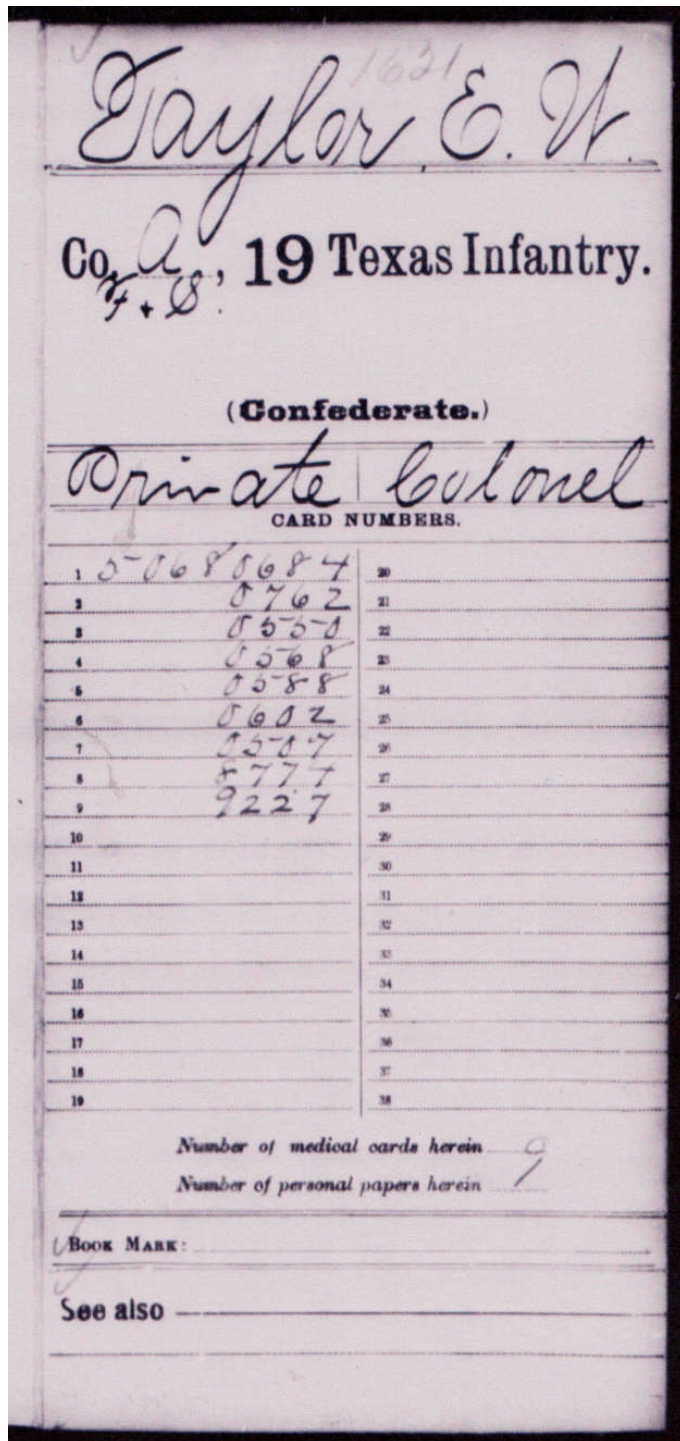 1631
Taylor, E. W.
Co. A, 19 Texas Infantry.
F. + S.
(Confederate.)
Private | Colonel
CARD NUMBERS.
1 50680684 20
2 0762 21
3 0550 22
4 0568 23
5 0588 24
6 0602 25
7 0507 26
8 8774 27
9 9227 28
10 29
11 30
12 31
13 32
14 33
15 34
16 35
17 36
18 37
19 38
Number of medical cards herein 0
Number of personal papers herein 1
BOOK MARK:
See also